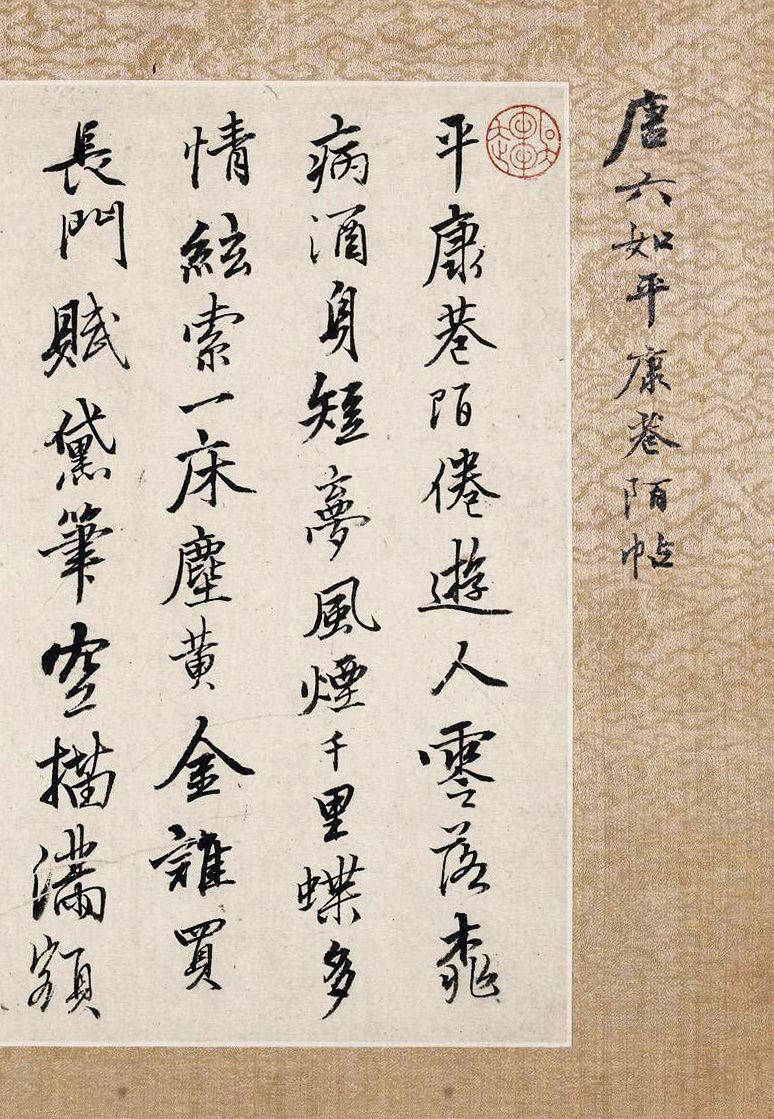 唐六如平康巷陌帖
平康巷陌倦遊人零落桃
病酒身短夢風煙千里蝶多
情絃索一床塵黄金誰買
長門賦黛筆空描滿額